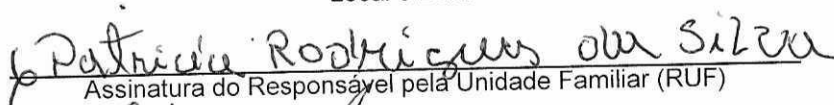 Patricia Rodrigues da Silva
Assinatura do Responsável pela Unidade Familiar (RUF)